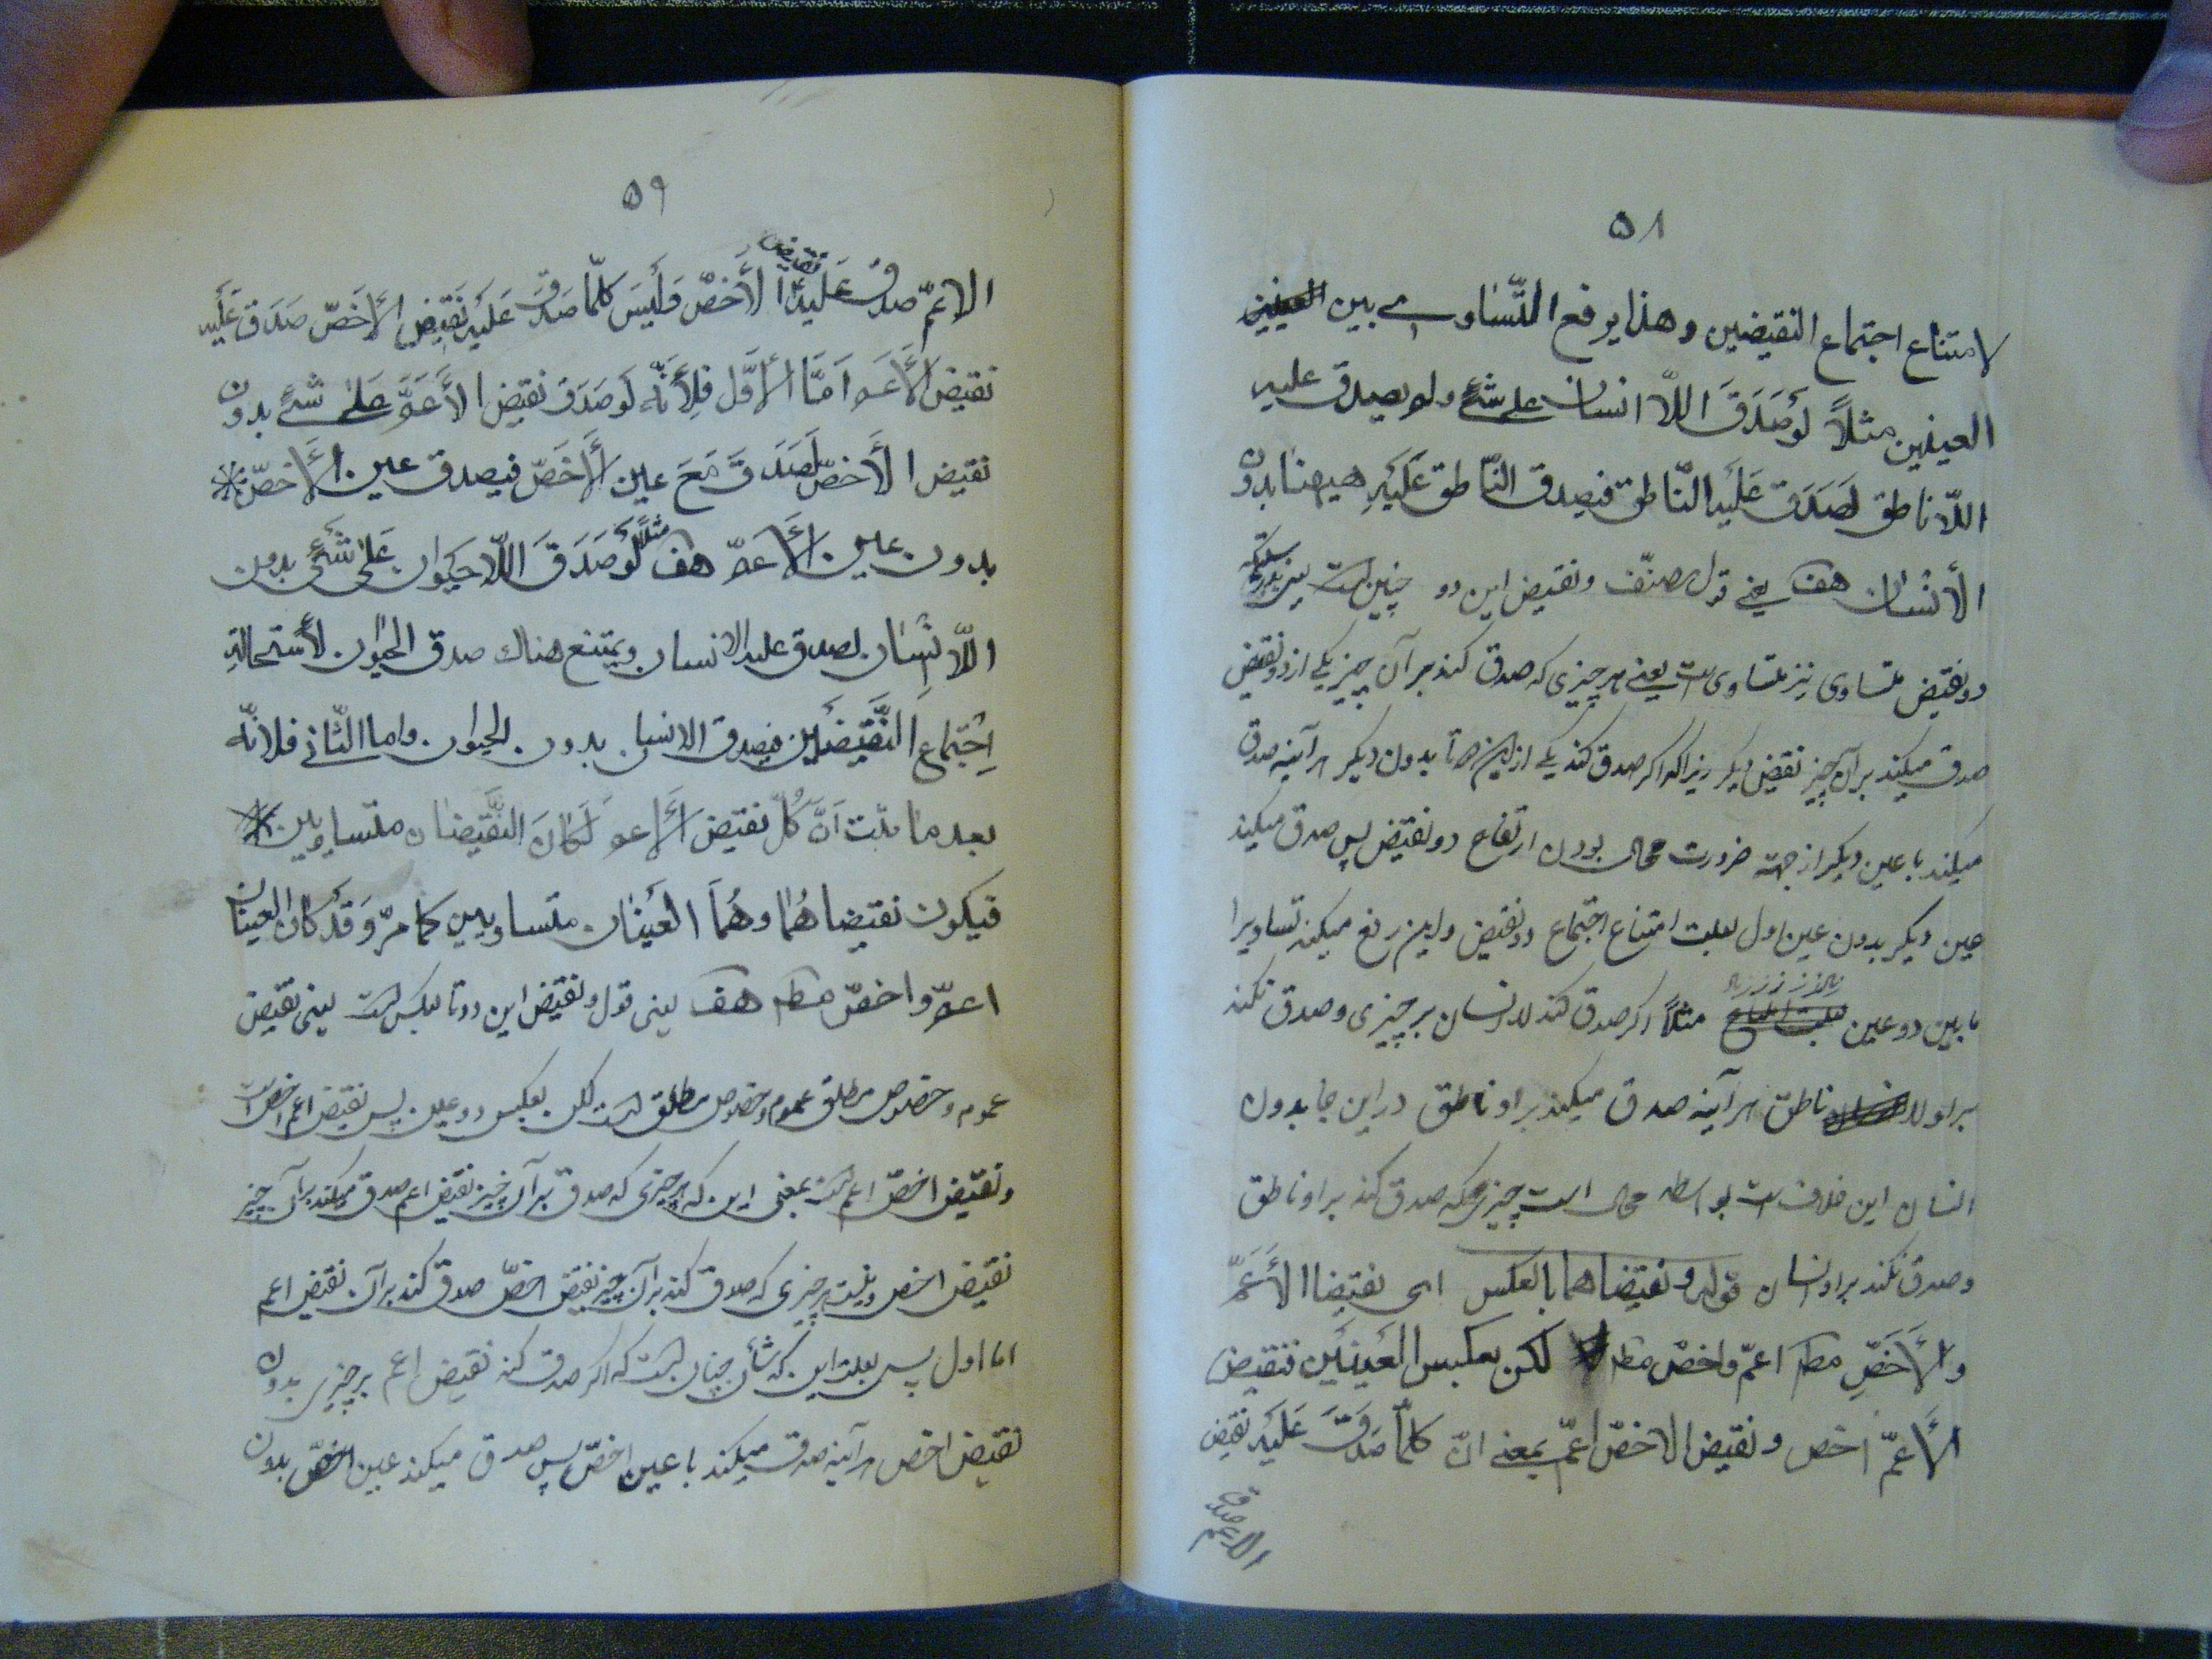 ۵۸
لامتناع اجتماع النقیضین وهذا یرفع التّساوی بین العینین
العینین مثلاً لَو صَدَقَ اللّا انسان علی شئ ولم یصدق علیه
اللّا ناطق لصَدَق عَلَیه النّاطق فیصدق النّاطق عَلَیهِ هیهنا بدون
الأنسان هف یعنی قول مصنّف ونقیض این دو چنین است یعنی
دو نقیض متساوی نیز متساوی است یعنی هر چیزی که صدق کند بر آن چیز یکی از دو نقیض
صدق میکند بر آن چیز نقیض دیگر زیرا که اگر صدق کند یکی از این دو تا بدون دیگر هر آینه صدق
میکند با عین دیگر از جهته ضرورت محال بودن ارتفاع دو نقیض پس صدق میکند
عین دیگر بدون عین اول بعلت امتناع اجتماع دو نقیض و این رفع میکند تساوی را
ما بین دو عین مثلاً اگر صدق کند لا انسان بر چیزی و صدق نکند
بر او لا ناطق هر آینه صدق میکند بر او ناطق در این جا بدون
انسان این خلاف است بواسطه محال است چیزی که صدق کند بر او ناطق
و صدق نکند بر او انسان قوله ونقیضاهما بالعکس ای نقیضا الأَعَمّ
والأَخَصِّ مطم اعمّ واخصّ مطم لکن بعکس العینَین فنقیض
الأَعمّ اخص ونقیض الاخصّ اعمّ بمعنی انّ کلّما صَدَقَ عَلَیه نقیض
الاعم صدق
۵۹
الاعمّ صدق عَلَیه نقیض الأخصّ وَلَیسَ کلّما صَدَقَ عَلَیه نَقیض الأَخَصّ صَدَق عَلَیه
نقیض الأَعم امّا الأَوّل فلِأَنّه لَو صَدَقَ نقیض الأَعَمّ عَلی شئ بدون
نقیض الأَخصّ لصَدَقَ مَعَ عین الأَخَصّ فیصدق عین الأَخصّ
بدون عین الأَعمّ هف مثلاً لَو صَدَقَ اللّا حَیَوان عَلی شَئ بدون
اللّا اِنسان لصدق علیه الانسان ویمتنع هناك صدق الحیوان لأستحالةِ
اِجتماع النَّقیضَین فیصدق الانسان بدون الحیوان واما الثّانی فلانّه
بعد ما ثبت اَنّ کُلّ نقیض الأَعم لَکانَ النَّقیضان متساویین
فیکون نقیضاهُما وهُمَا العَینان متساویین کما مرّ وَقَد کان العینان
اعمّ واخصّ مطم هف یعنی قول ونقیض این دو تا بعکس است یعنی نقیض
عموم و خصوص مطلق عموم و خصوص مطلق است لکن بعکس دو عین پس نقیض اعم اخص است
و نقیض اخصّ اعم است بمعنی این که هر چیزی که صدق بر آن چیز نقیض اعم صدق میکند بر آن چیز
نقیض اخص و نیست هر چیزی که صدق کند بر آن چیز نقیض اخصّ صدق کند بر آن نقیض اعم
اما اول پس بعلت این که شأن چنان است که اگر صدق کند نقیض اعم بر چیزی بدون
نقیض اخص هر آینه صدق میکند با عین اخصّ پس صدق میکند عین اخصّ بدون